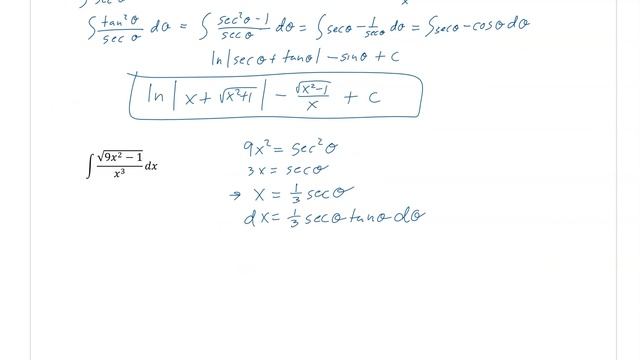 ∫ tan²θ/sec θ dθ = ∫ (sec²θ-1)/secθ dθ = ∫ secθ - 1/secθ dθ = ∫ secθ - cosθ dθ
ln|secθ + tanθ| - sinθ + c
ln | x + √(x²+1) | - √(x²-1)/x + c
∫ √(9x² − 1)/x³ dx
9x² = sec²θ
3x = secθ
→ x = 1/3 secθ
dx = 1/3 secθ tanθ dθ